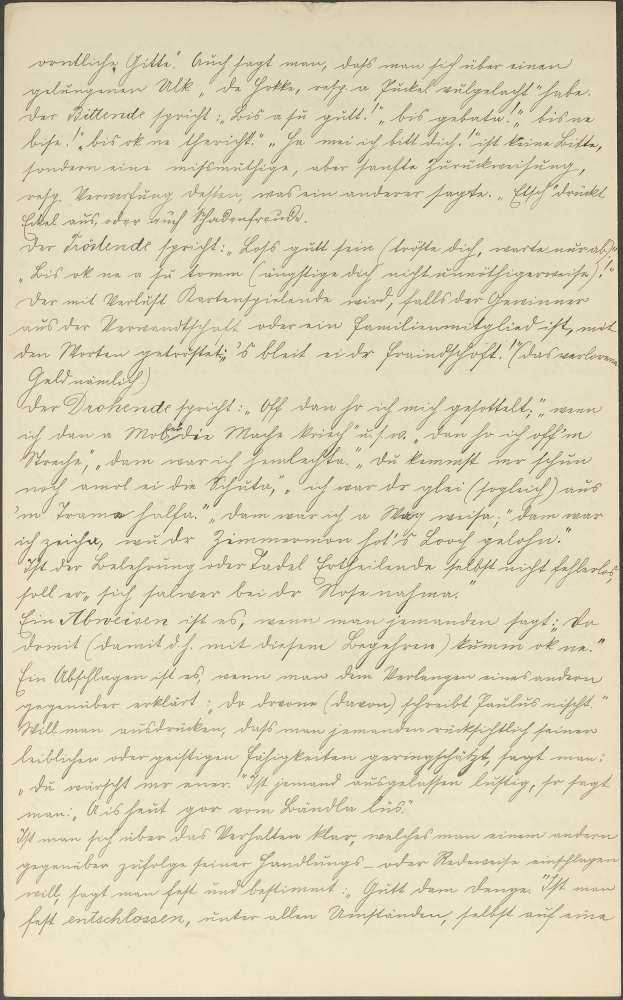 orntliche Gitte." Auch sagt man, daß man sich über einen
gelungenen Ulk „de Hokke, resp. a Puckel vulgelacht" habe.
Der Bittende spricht: „Bis a su gutt!", „bis gebata!", „bis ne
bise!", „bis ok ne thericht." „Ja mei ich bitt dich!" ist keine Bitte,
sondern eine mißmuthige, aber sanfte Zurückweisung,
resp. Verwerfung dessen, was ein anderer sagte. „Etsch" drückt
Eckel aus, oder auch Schadenfreude.
Der Tröstende spricht: „Loß gutt sein (tröste dich, warte nur ab)!"
„Bis ok ne a su tomm (ängstige dich nicht unnöthigerweise)!"
Der mit Verlust Kartenspielende wird, falls der Gewinner
aus der Verwandtschaft oder ein Familienmitglied ist, mit
den Worten getröstet: „'s bleit ei dr Fraindschoft!" (das verlorene
Geld nämlich)
Der Drohende spricht: „Off dan hr ich mich gesottelt;" „wenn
ich dan a Mol ei die Mache kriech" u. s. w. „dan hr ich off'm
Striche", „dam war ich hemlechta." „Du kemmst mr schun
noch amol ei die Schuta," „ich war dr glei (sogleich) aus
'm Trama halfa." „dam war ich a Wag weisa;" „dam war
ich zeicha, wu dr Zimmermon hot 's Looch gelohn."
Ist der Belehrung oder Tadel Ertheilende selbst nicht fehlerlos,
soll er „sich salwer bei dr Nose nahma."
Ein Abweisen ist es, wenn man jemanden sagt: „Do
drmit (damit d. h. mit diesem Begehren) kumm ok ne."
Ein Abschlagen ist es, wenn man dem Verlangen eines andern
gegenüber erklärt: „do drvone (davon) schreibt Paulus nischt."
Will man ausdrücken, daß man jemanden rücksichtlich seinen
leiblichen oder geistigen Fähigkeiten geringschätzt, sagt man:
„du wärscht mr ener." Ist jemand ausgelassen lustig, so sagt
man: „A is heut gor vom Bändla lus."
Ist man sich über das Verhalten klar, welches man einem andern
gegenüber zufolge seiner Handlungs- oder Redeweise einschlagen
will, sagt man fest und bestimmt: „Gutt dam Denge." Ist man
fest entschlossen, unter allen Umständen, selbst auf eine